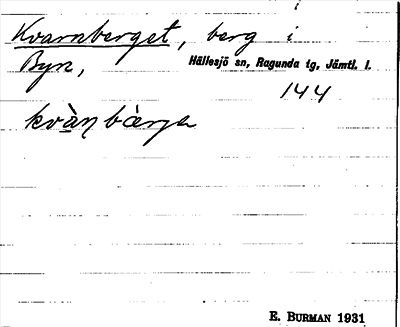 Kvarnberget, berg i
Byn, Hällesjö sn, Ragunda tg, Jämtl. l.
144
E. BURMAN 1931